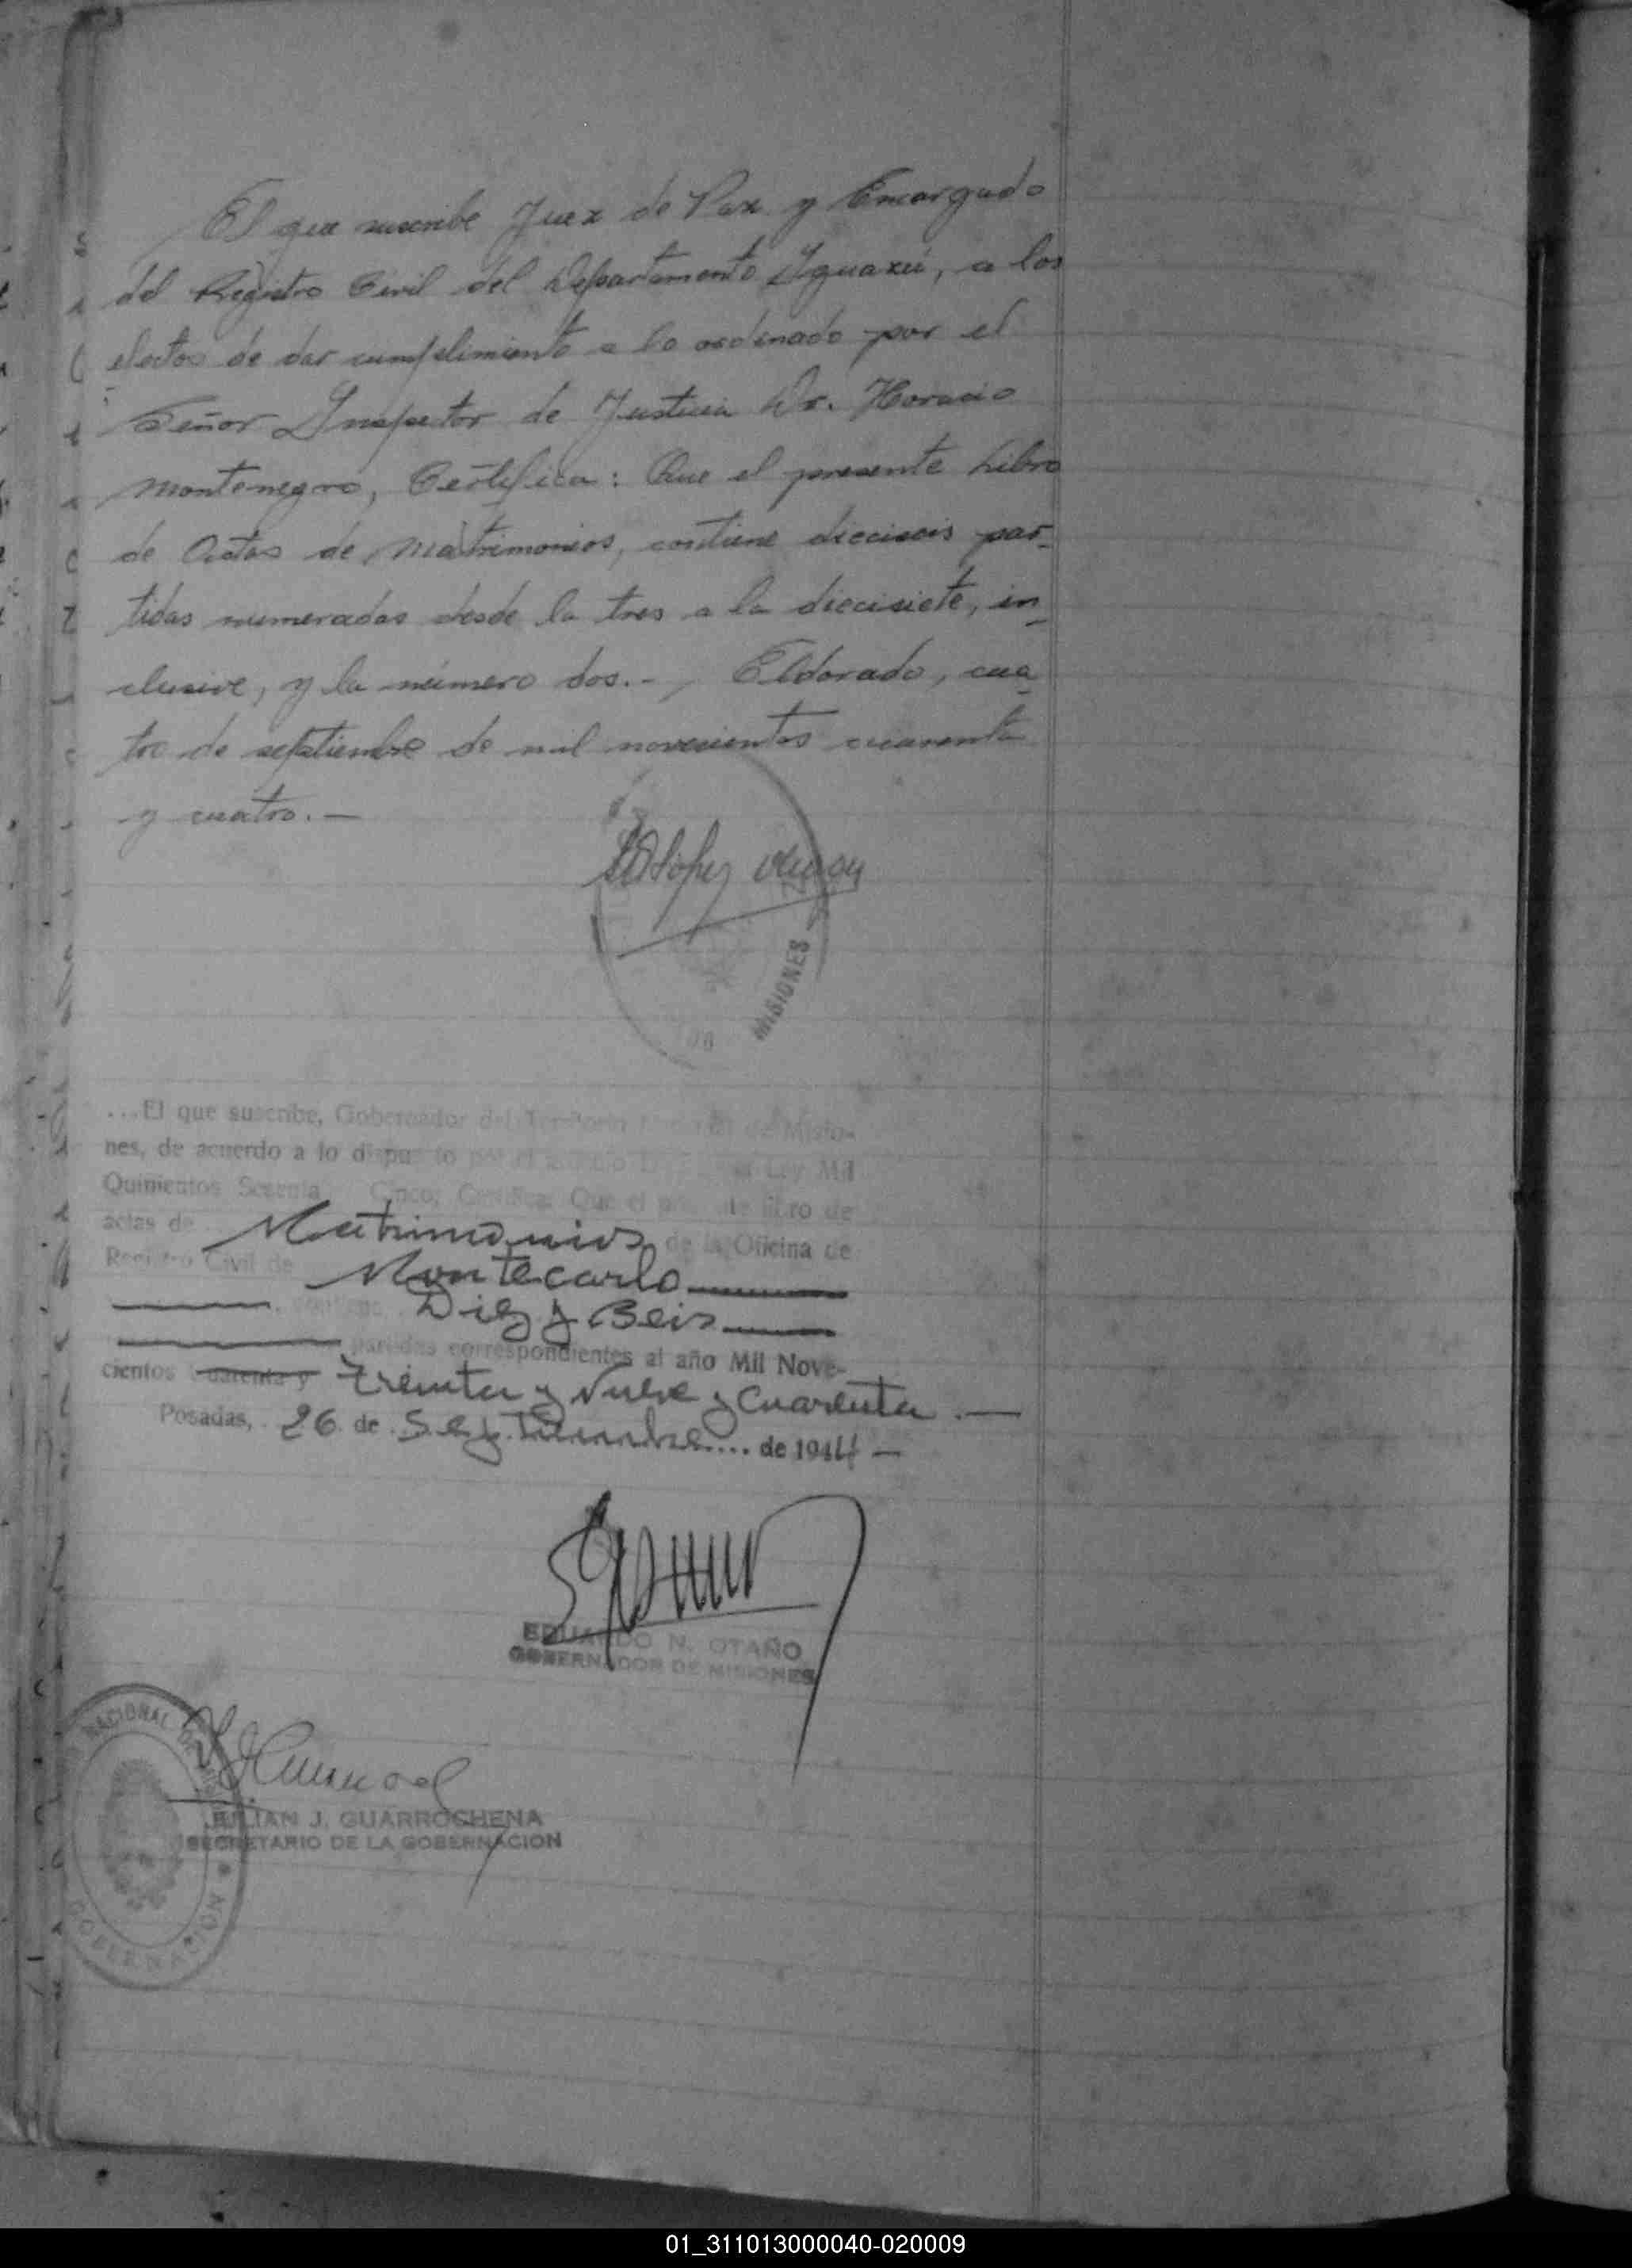 El que suscribe Juez de Paz y Encargado
del Registro Civil del Departamento Iguazú, a los
efectos de dar cumplimiento a lo ordenado por el
Señor Inspector de Justicia Dr. Horacio
Montenegro, Certifica: Que el presente Libro
de Actas de Matrimonios, contiene dieciseis par-
tidas numeradas desde la tres a la diecisiete, in-
clusive, y la número dos.-, Eldorado, cua-
tro de septiembre de mil novecientos cuarenta
y cuatro.—
MISIONES
...El que suscribe, Gobernador del Territorio de Misio-
nes, de acuerdo a lo dispuesto por el Ley Mil
Quinientos Sesenta Cinco, Certifica: Que el presente libro de
actas de Matrimonios de la Oficina de
Registro Civil de Montecarlo
contiene Diez y Seis
partidas correspondientes al año Mil Nove-
cientos cuarenta y Treinta y Nueve y Cuarenta.—
Posadas, 26 de Septiembre.... de 1944—
EDUARDO N. OTAÑO
GOBERNADOR DE MISIONES
NACIONAL DE
JULIAN J. GUARROCHENA
SECRETARIO DE LA GOBERNACION
GOBERNACION
01_311013000040-020009